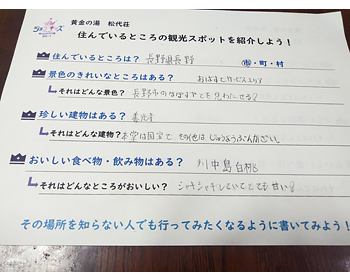 黄金の湯 松代荘
住んでいるところの観光スポットを紹介しよう！
住んでいるところは？ 長野県長野 市・町・村
景色のきれいなところはある？ おばすてサービスエリア
それはどんな景色？ 長野市の
珍しい建物はある？ 善光寺
それはどんな建物？ 本堂は国宝で その他はじゅうようぶんかざい。
おいしい食べ物・飲み物はある？ 川中島白桃
それはどんなところがおいしい？ シャキシャキしていてとても甘い？
その場所を知らない人でも行ってみたくなるように書いてみよう！